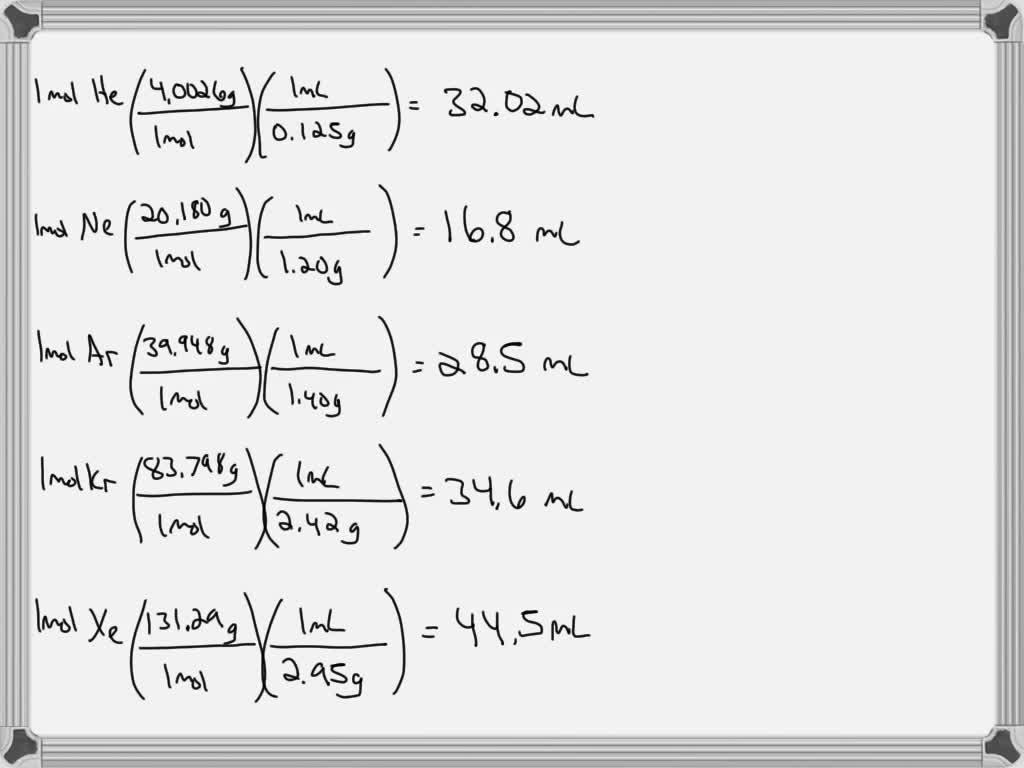 1mol He (4.0026g / 1mol) (1mL / 0.125g) = 32.02mL
1mol Ne (20.180 g / 1mol) (1mL / 1.20g) = 16.8 mL
1mol Ar (39.948g / 1mol) (1mL / 1.40g) = 28.5 mL
1mol Kr (83.798g / 1mol) (1mL / 2.42g) = 34.6 mL
1mol Xe (131.29g / 1mol) (1mL / 2.95g) = 44.5mL